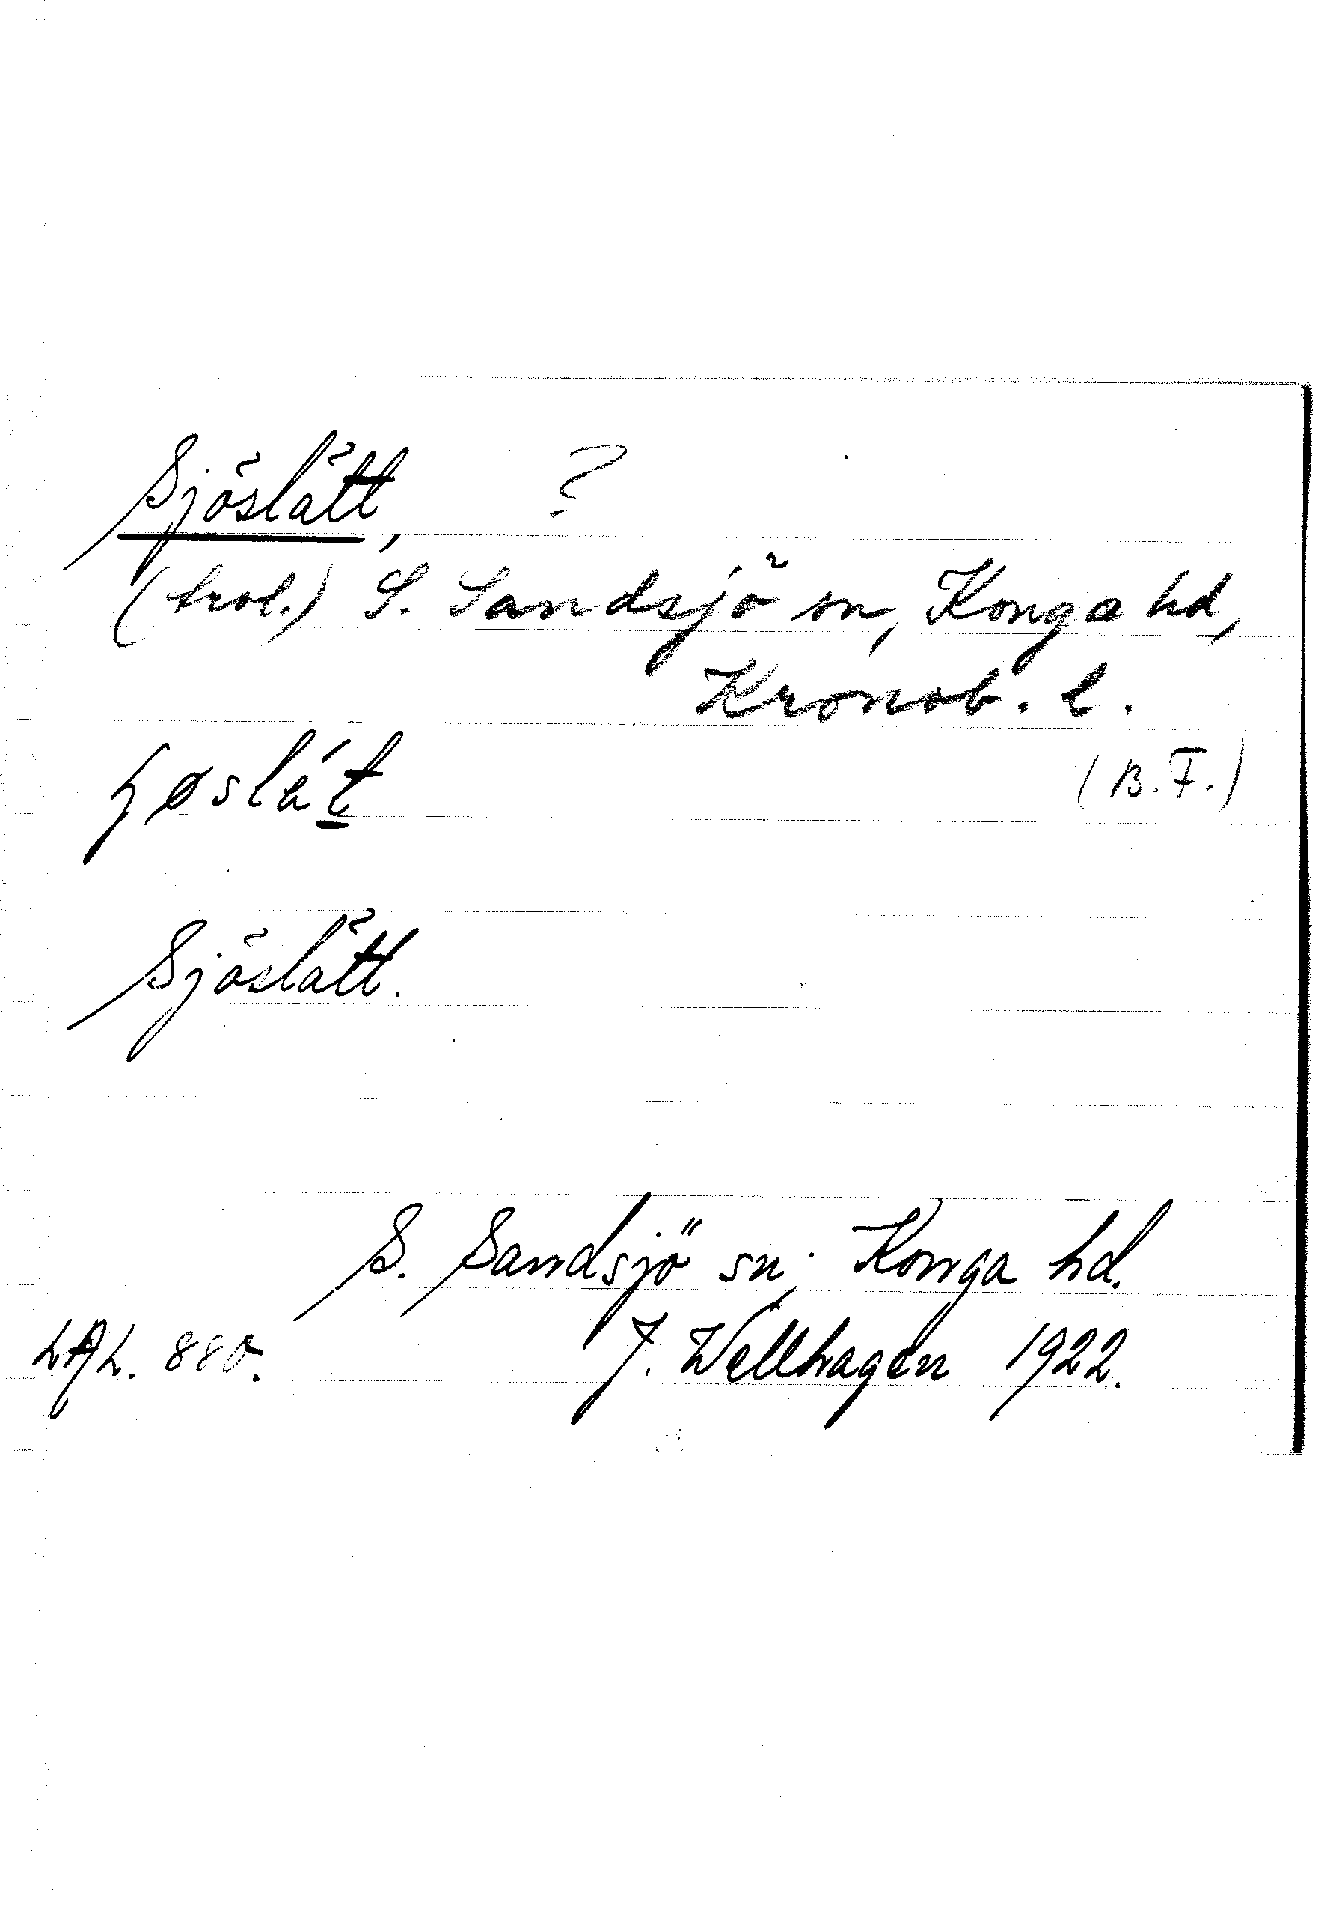 Sjöslått, ?
(trol.) S. Sandsjö sn, Konga hd,
Kronob. l.
(B. F.)
Sjöslått.
S. Sandsjö sn; Konga hd.
LAL. 880. J. Wellhagen 1922.